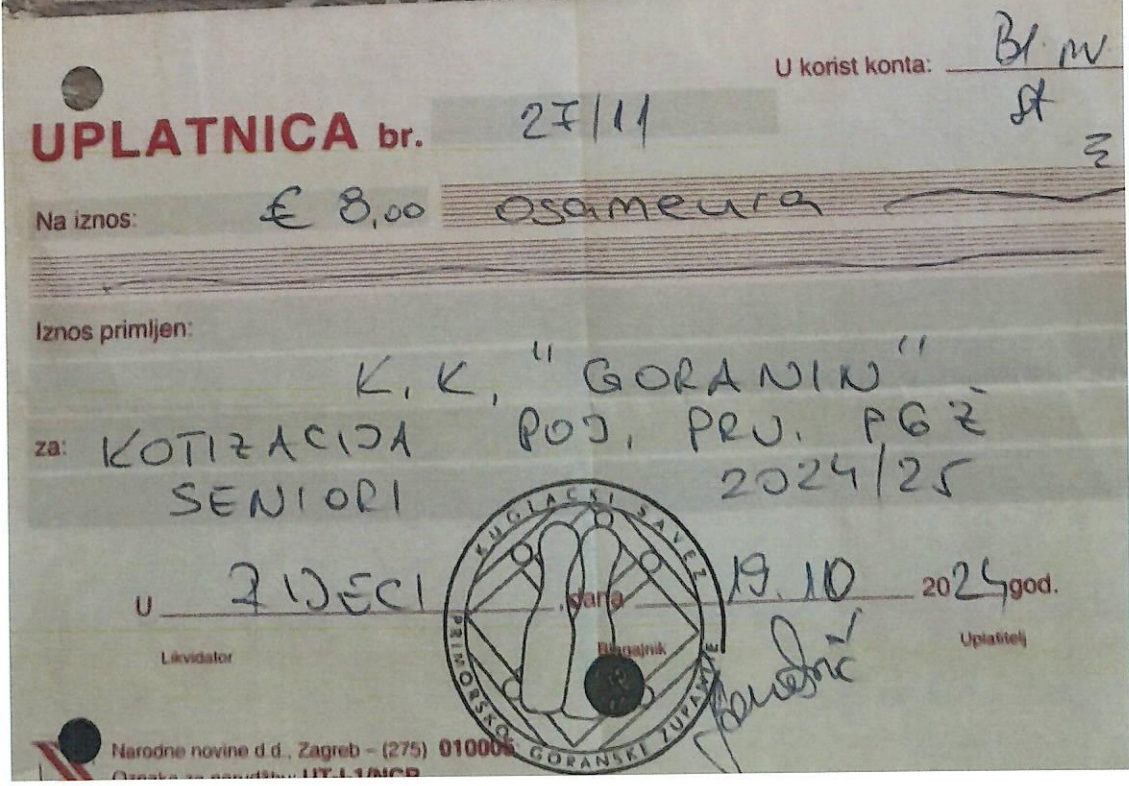 U korist konta: Bl. br
UPLATNICA br. 27/11
Na iznos: € 8,00 osameura
Iznos primljen:
K. K. "GORANIN"
za: KOTIZACIJA POJ. PRV. PGŽ
SENIORI 2024/25
U RIJECI, dana 19.10 2024 god.
Likvidator Blagajnik Uplatitelj
KUGLAČKI SAVEZ PRIMORSKO GORANSKE ŽUPANIJE
Narodne novine d.d., Zagreb – (275) 010006
Oznaka za narudžbu: UT-I-1/NCR